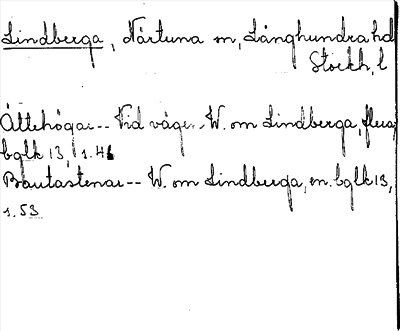 Lindberga, Närtuna sn, Långhundra hd
Stockh. l
Ättehögar -- Vid vägen W. om Lindberga, flera,
bglk 13, 1.46
Bautastenar -- W. om Lindberga, en. bglk 13,
1.53